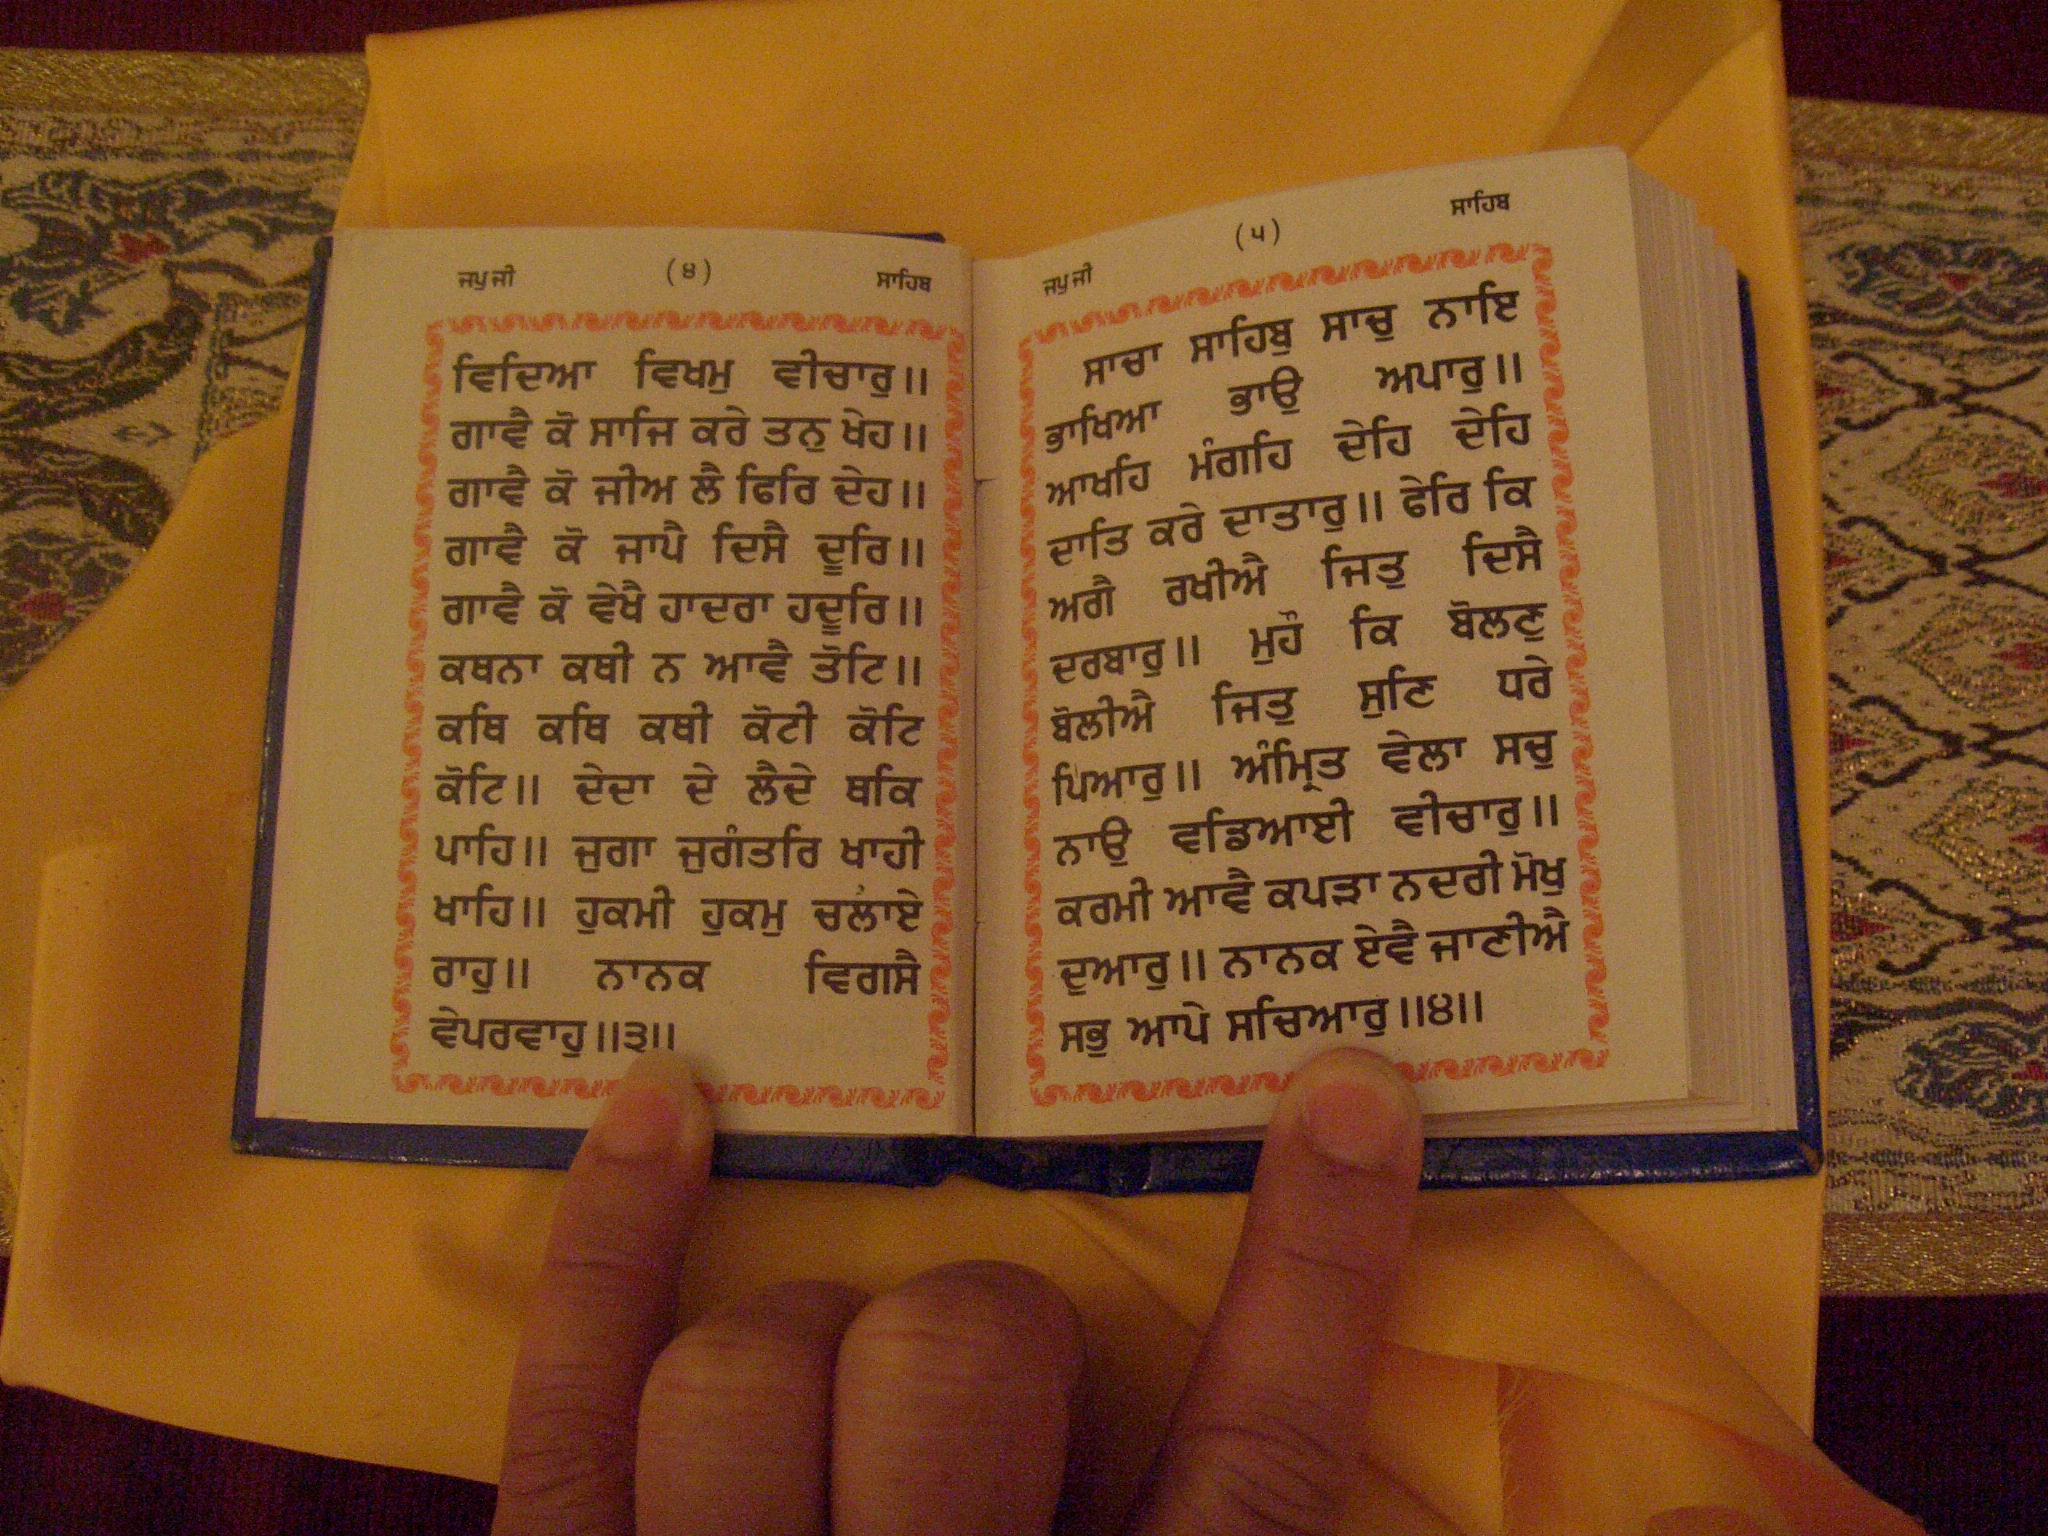 ਜਪੁ ਜੀ (੪) ਸਾਹਿਬ
ਵਿਦਿਆ ਵਿਖਮੁ ਵੀਚਾਰੁ॥
ਗਾਵੈ ਕੋ ਸਾਜਿ ਕਰੇ ਤਨੁ ਖੇਹ॥
ਗਾਵੈ ਕੋ ਜੀਅ ਲੈ ਫਿਰਿ ਦੇਹ॥
ਗਾਵੈ ਕੋ ਜਾਪੈ ਦਿਸੈ ਦੂਰਿ॥
ਗਾਵੈ ਕੋ ਵੇਖੈ ਹਾਦਰਾ ਹਦੂਰਿ॥
ਕਥਨਾ ਕਥੀ ਨ ਆਵੈ ਤੋਟਿ॥
ਕਥਿ ਕਥਿ ਕਥੀ ਕੋਟੀ ਕੋਟਿ
ਕੋਟਿ॥ ਦੇਦਾ ਦੇ ਲੈਦੇ ਥਕਿ
ਪਾਹਿ॥ ਜੁਗਾ ਜੁਗੰਤਰਿ ਖਾਹੀ
ਖਾਹਿ॥ ਹੁਕਮੀ ਹੁਕਮੁ ਚਲਾਏ
ਰਾਹੁ॥ ਨਾਨਕ ਵਿਗਸੈ
ਵੇਪਰਵਾਹੁ॥੩॥
ਜਪੁ ਜੀ (੫) ਸਾਹਿਬ
ਸਾਚਾ ਸਾਹਿਬੁ ਸਾਚੁ ਨਾਇ
ਭਾਖਿਆ ਭਾਉ ਅਪਾਰੁ॥
ਆਖਹਿ ਮੰਗਹਿ ਦੇਹਿ ਦੇਹਿ
ਦਾਤਿ ਕਰੇ ਦਾਤਾਰੁ॥ ਫੇਰਿ ਕਿ
ਅਗੈ ਰਖੀਐ ਜਿਤੁ ਦਿਸੈ
ਦਰਬਾਰੁ॥ ਮੁਹੌ ਕਿ ਬੋਲਣੁ
ਬੋਲੀਐ ਜਿਤੁ ਸੁਣਿ ਧਰੇ
ਪਿਆਰੁ॥ ਅੰਮ੍ਰਿਤ ਵੇਲਾ ਸਚੁ
ਨਾਉ ਵਡਿਆਈ ਵੀਚਾਰੁ॥
ਕਰਮੀ ਆਵੈ ਕਪੜਾ ਨਦਰੀ ਮੋਖੁ
ਦੁਆਰੁ॥ ਨਾਨਕ ਏਵੈ ਜਾਣੀਐ
ਸਭੁ ਆਪੇ ਸਚਿਆਰੁ॥੪॥